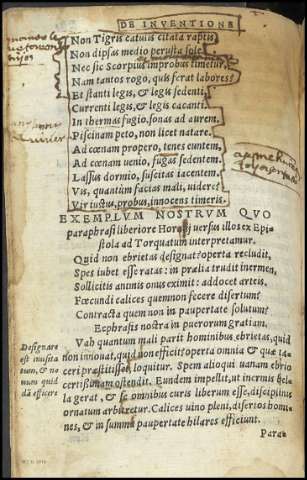 DE INVENTIONE
Non Tigris catulis citata raptis,
Non dipsas medio perusta sole.
Nec sic Scorpius improbus timetur.
Nam tantos rogo, quis ferat labores?
Et stanti legis, & legis sedenti,
Currenti legis, & legis cacanti.
In thermas fugio, sonas ad aurem.
Piscinam peto, non licet natare.
Ad cœnam propero, tenes euntem,
Ad cœnam uenio, fugas sedentem.
Lassus dormio, suscitas iacentem.
Vis, quantum facias mali, uidere?
Vir iustus, probus, innocens timeris.
EXEMPLVM NOSTRVM QVO
paraphrasi liberiore Horatij uersus illos ex Epi-
stola ad Torquatum interpretamur.
Quid non ebrietas designat? operta recludit,
Spes iubet esse ratas: in prælia trudit inermen,
Sollicitis animis onus eximit: addocet arteis.
Fœcundi calices quemnon fecere disertum?
Contracta quem non in paupertate solutum?
Ecphrasis nostra in puerorum gratiam.
Designare
est inusita
tum, & no
uum quid
dā efficere
Vah quantum mali parit hominibus ebrietas, quid
non innouat, quid non efficit? operta omnia & quæ ta-
ceri præstitisset, loquitur. Spem alioqui uanam ebrio
certissimam ostendit. Eundem impellit, ut inermis bel-
la gerat, & se omnibus curis liberum esse, disciplinis
ornatum arbitretur. Calices uino pleni, disertos homi-
nes, & in summa paupertate hilares efficiunt.
Para-